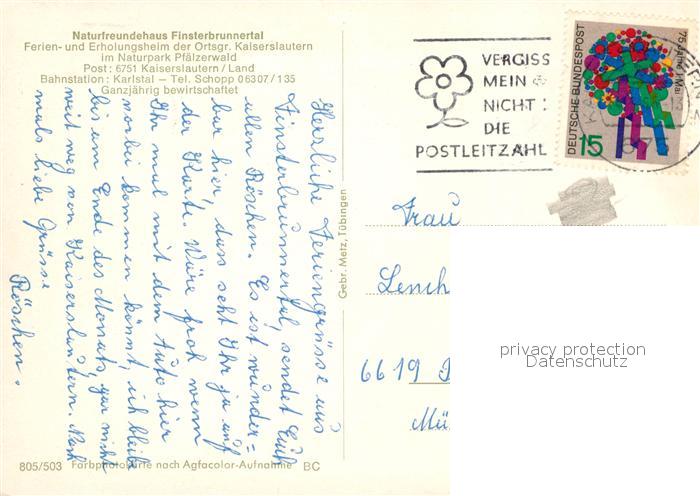 Naturfreundehaus Finsterbrunnertal
Ferien- und Erholungsheim der Ortsgr. Kaiserslautern
im Naturpark Pfälzerwald
Post: 6751 Kaiserslautern / Land
Bahnstation: Karlstal — Tel. Schopp 06307/135
Ganzjährig bewirtschaftet
Herzliche Feriengrüsse aus
Finsterbrunnertal, sendet Euch
allen Röschen. Es ist wunder=
bar hier, das seht Ihr ja auf
der Karte. Wäre froh wenn
Ihr mal mit dem Auto hier
vorbei kommen könnt, ich bleibe
bis am Ende des Monats, gar nicht
weit weg von Kaiserslautern. Noch
mals liebe Grüsse
Röschen.
805/503 Farbphotokarte nach Agfacolor-Aufnahme BC
Gebr. Metz, Tübingen
VERGISS
MEIN
NICHT:
DIE
POSTLEITZAHL
DEUTSCHE BUNDESPOST
75 Jahre 1. Mai
15
675
Frau
Lench
6619
Mü
privacy protection
Datenschutz